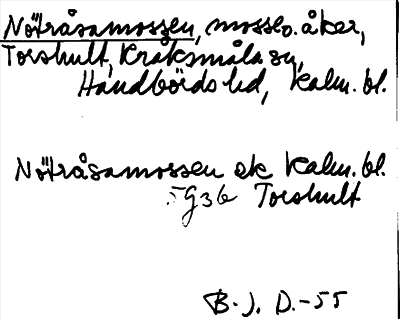 Nötråsamossen, mosse o. åker,
Torshult, Kråksmåla sn,
Handbörds hd, Kalm. bl.
Nötråsamossen ek Kalm. bl.
5g36 Torshult
B. J. D. -55